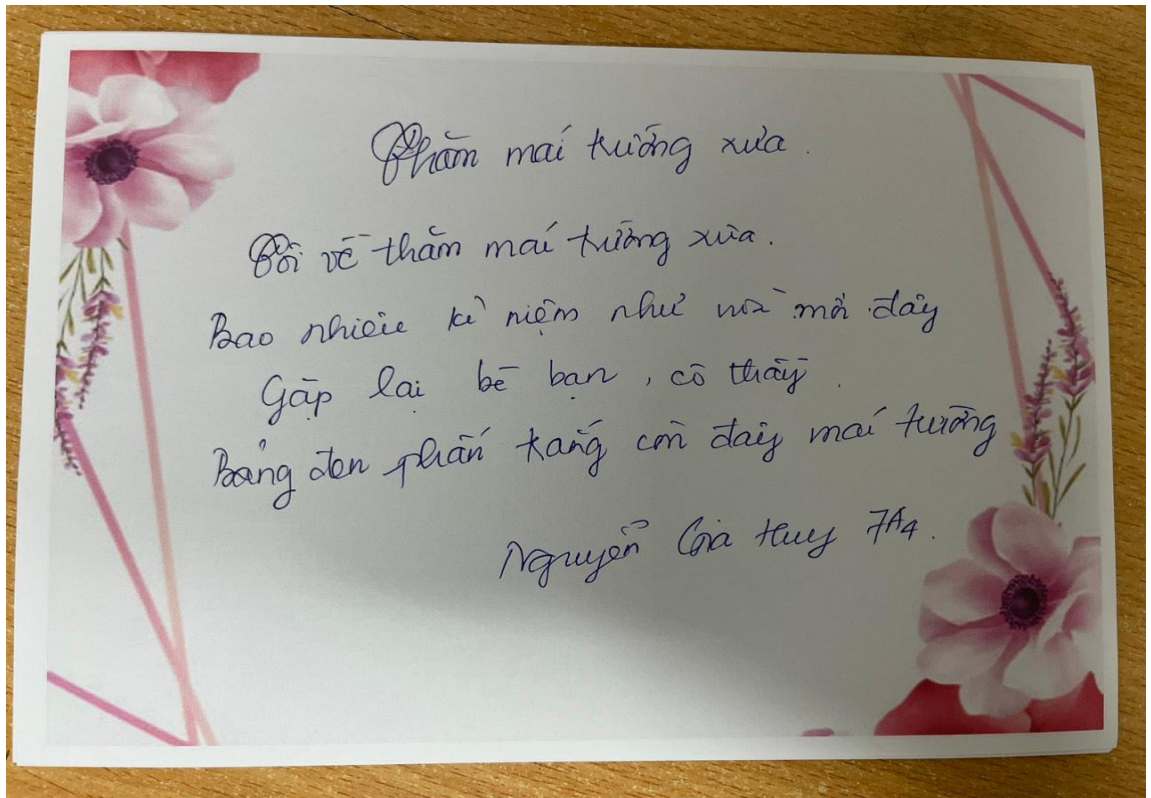 Thăm mái trường xưa.
Tôi về thăm mái trường xưa.
Bao nhiêu kỉ niệm như vừa mới đây
Gặp lại bè bạn, cô thầy.
Bảng đen phấn trắng còn đây mái trường
Nguyễn Gia Huy 7A4.